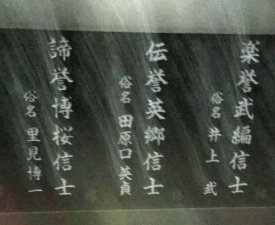 楽誉武編信士
俗名 井上 武
伝誉英郷信士
俗名 田原口英貞
諦誉博桜信士
俗名 里見博一